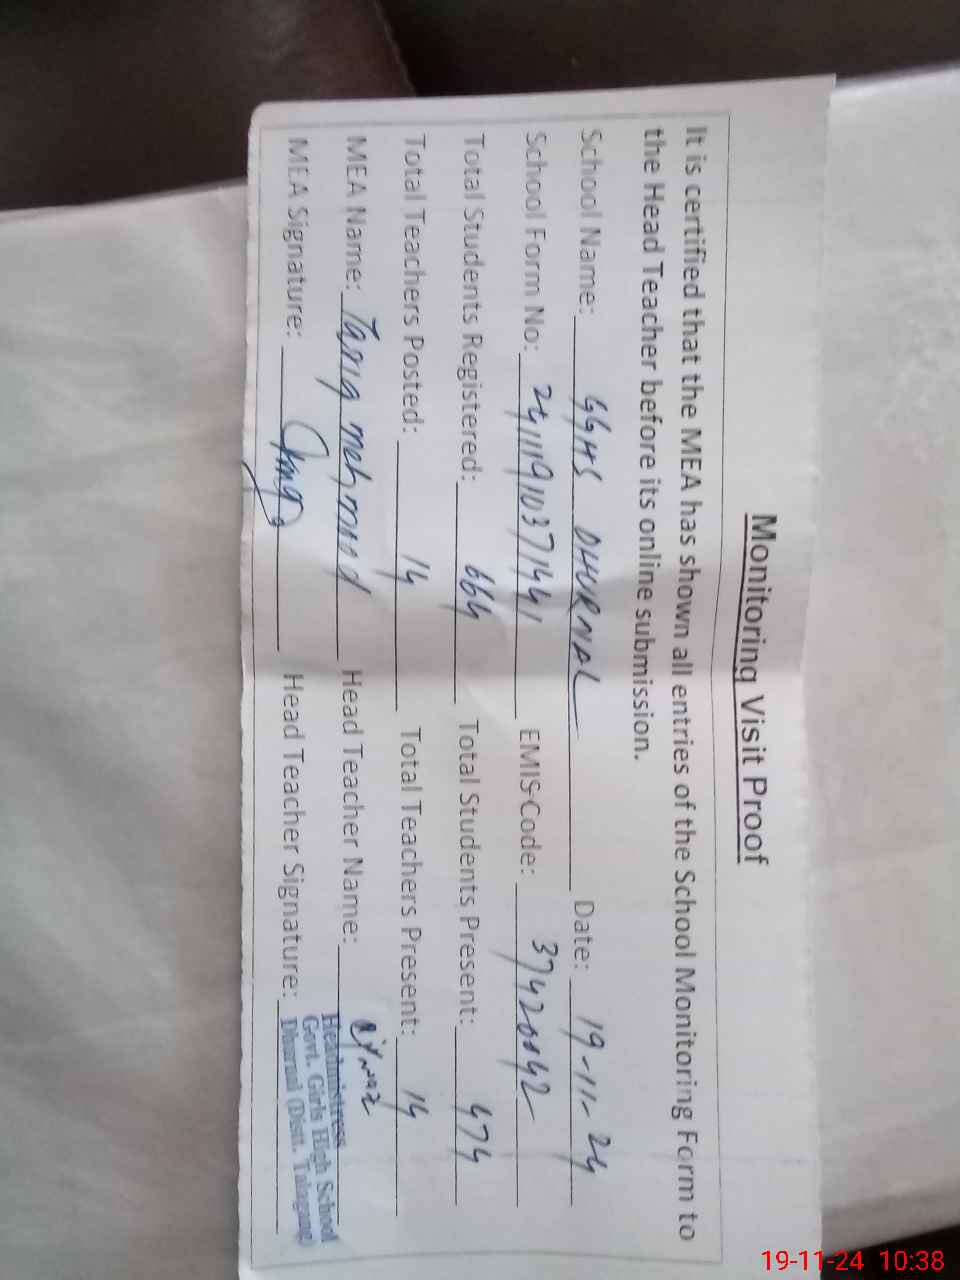 Monitoring Visit Proof
It is certified that the MEA has shown all entries of the School Monitoring Form to
the Head Teacher before its online submission.
School Name: GGHS DHURNAL Date: 19-11-24
School Form No: 24111910371441 EMIS Code: 37420042
Total Students Registered: 664 Total Students Present: 474
Total Teachers Posted: 14 Total Teachers Present: 14
MEA Name: Tariq mehmood Head Teacher Name:
MEA Signature: Head Teacher Signature:
Headmistress
Govt. Girls High School
Dhurnal (Distt. Talagang)
19-11-24 10:38